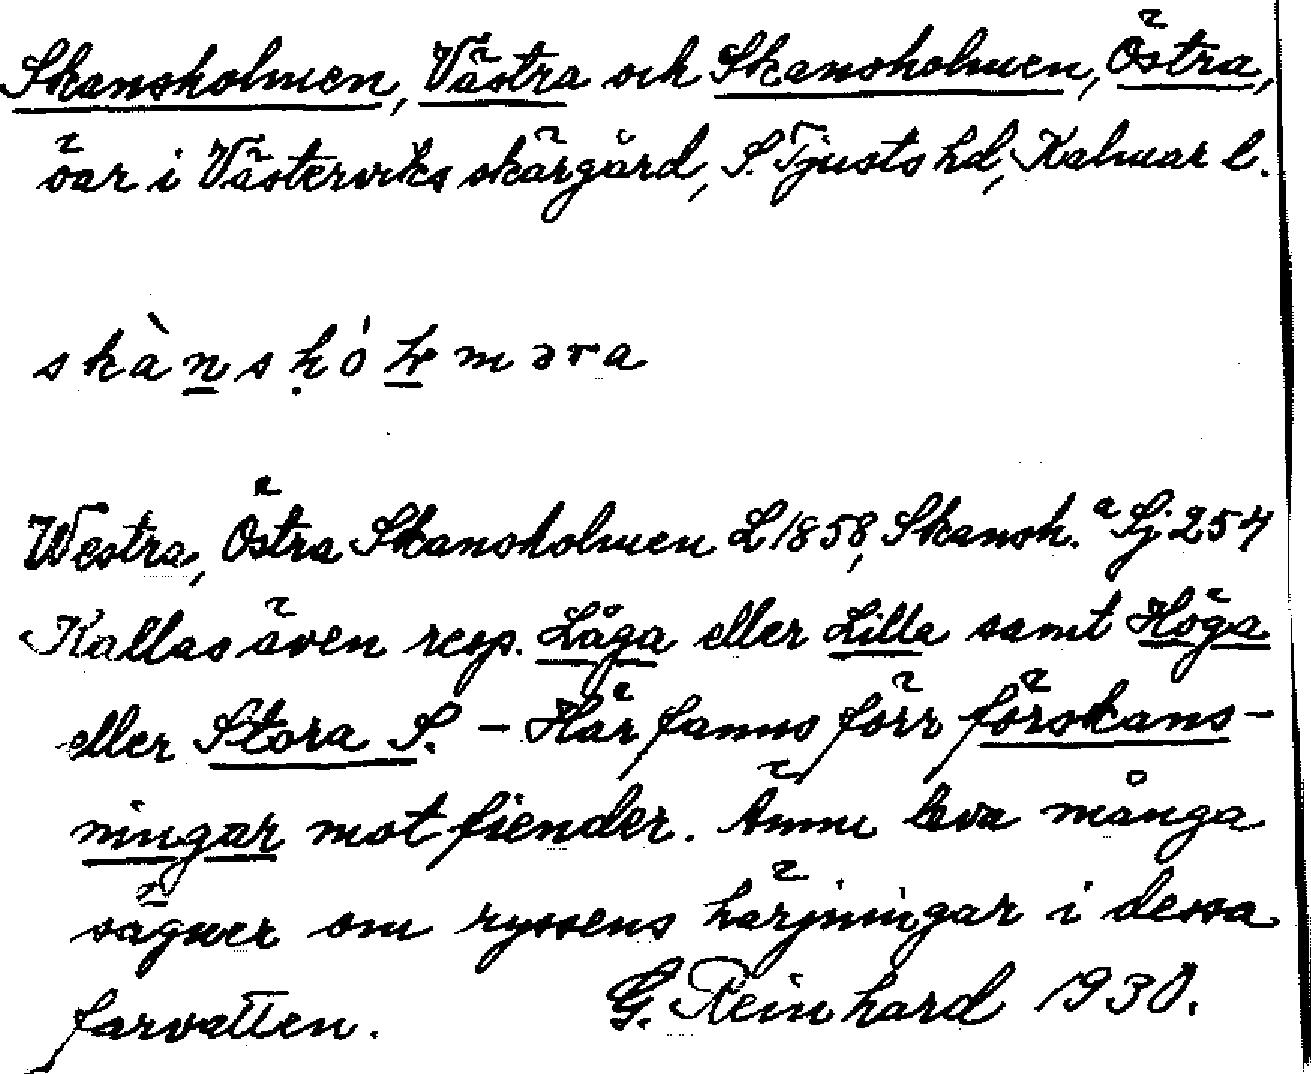 Skansholmen, Västra och Skansholmen, Östra,
öar i Västerviks skärgård, S. Tjusts hd, Kalmar l.
skàn̲sḥól̲məra
Westra, Östra Skansholmen L 1858, Skansh. a Sj 254
Kallas även resp. Låga eller Lilla samt Höga
eller Stora S. – Här fanns förr förskans-
ningar mot fiender. Ännu leva många
sägner om ryssens härjningar i dessa
farvatten. G. Reinhard 1930.